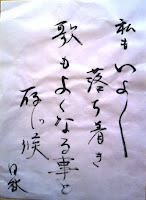 私もいよ〳〵
落ち着き
歌もよくなる事と
存じ候